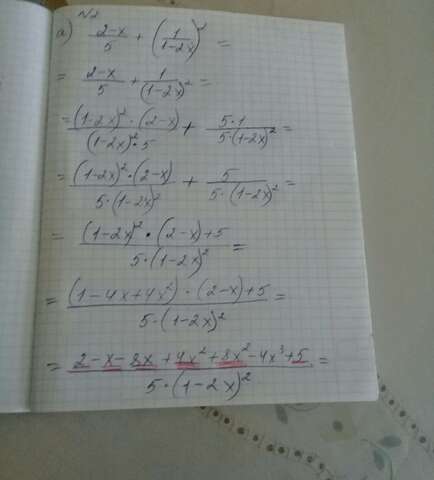 N2
а) (2-x)/5 + (1/(1-2x))² =
= (2-x)/5 + 1/(1-2x)² =
= ((1-2x)²·(2-x))/((1-2x)²·5) + (5·1)/(5·(1-2x)²) =
= ((1-2x)²·(2-x))/(5·(1-2x)²) + 5/(5·(1-2x)²) =
= ((1-2x)²·(2-x)+5)/(5·(1-2x)²) =
= ((1-4x+4x²)·(2-x)+5)/(5·(1-2x)²) =
= (2-x-8x+4x²+8x²-4x³+5)/(5·(1-2x)²) =